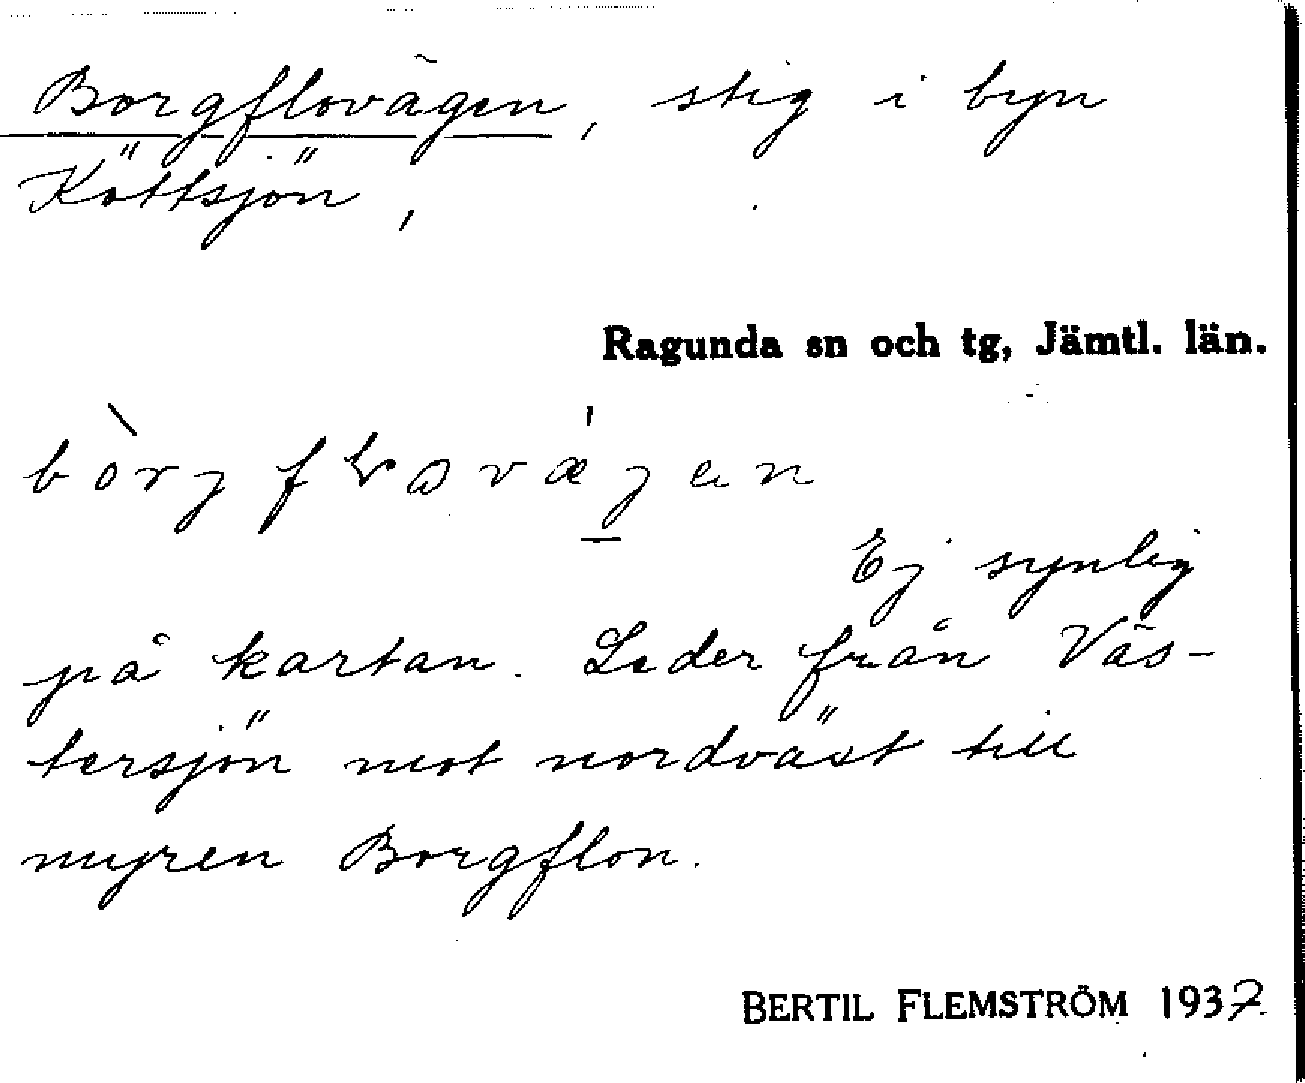 Borgflovägen, stig i byn
Köttsjön,
Ragunda sn och tg, Jämtl. län.
Ej synlig
på kartan. Leder från Väs-
tersjön mot nordväst till
myren Borgflon.
BERTIL FLEMSTRÖM 1937